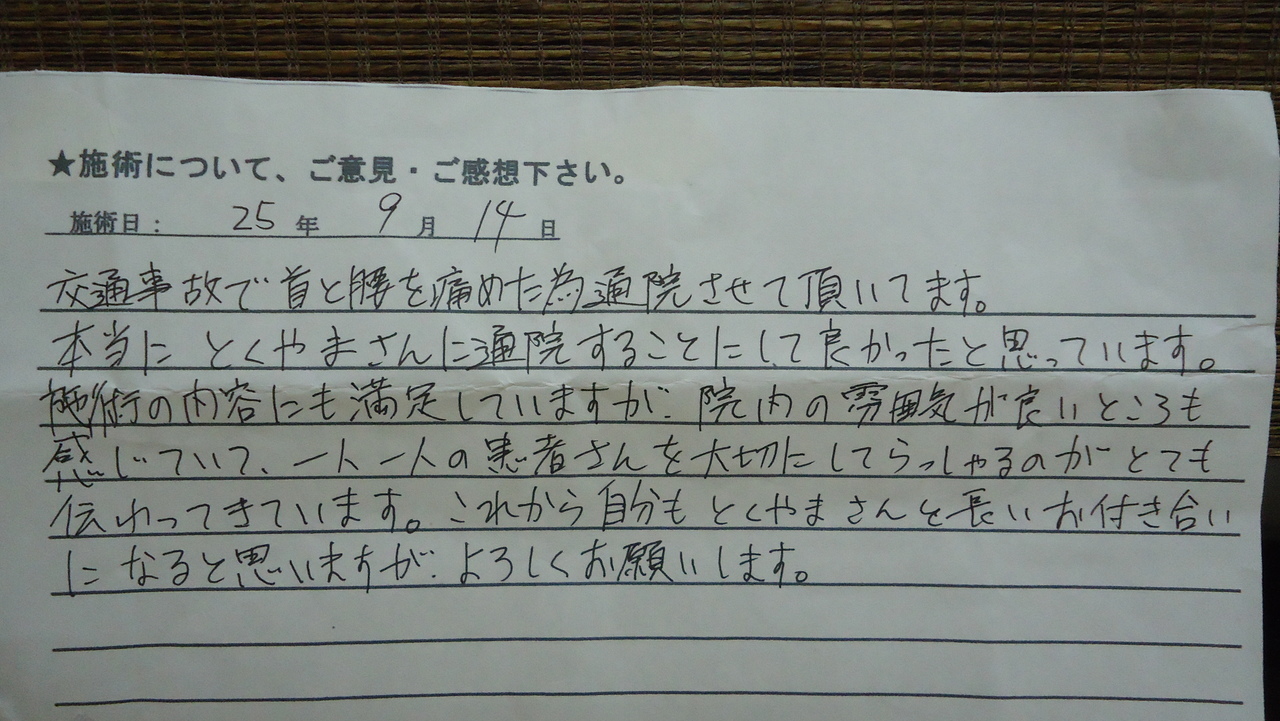 ★施術について、ご意見・ご感想下さい。
施術日： 25 年 9 月 14 日
交通事故で首と腰を痛めた為通院させて頂いてます。
本当に とくやまさんに通院することにして良かったと思っています。
施術の内容にも満足していますが、院内の雰囲気が良いところも
感じていて、一人一人の患者さんを大切にしてらっしゃるのがとても
伝わってきています。これから自分も とくやまさんと長いお付き合い
になると思いますが、よろしくお願いします。